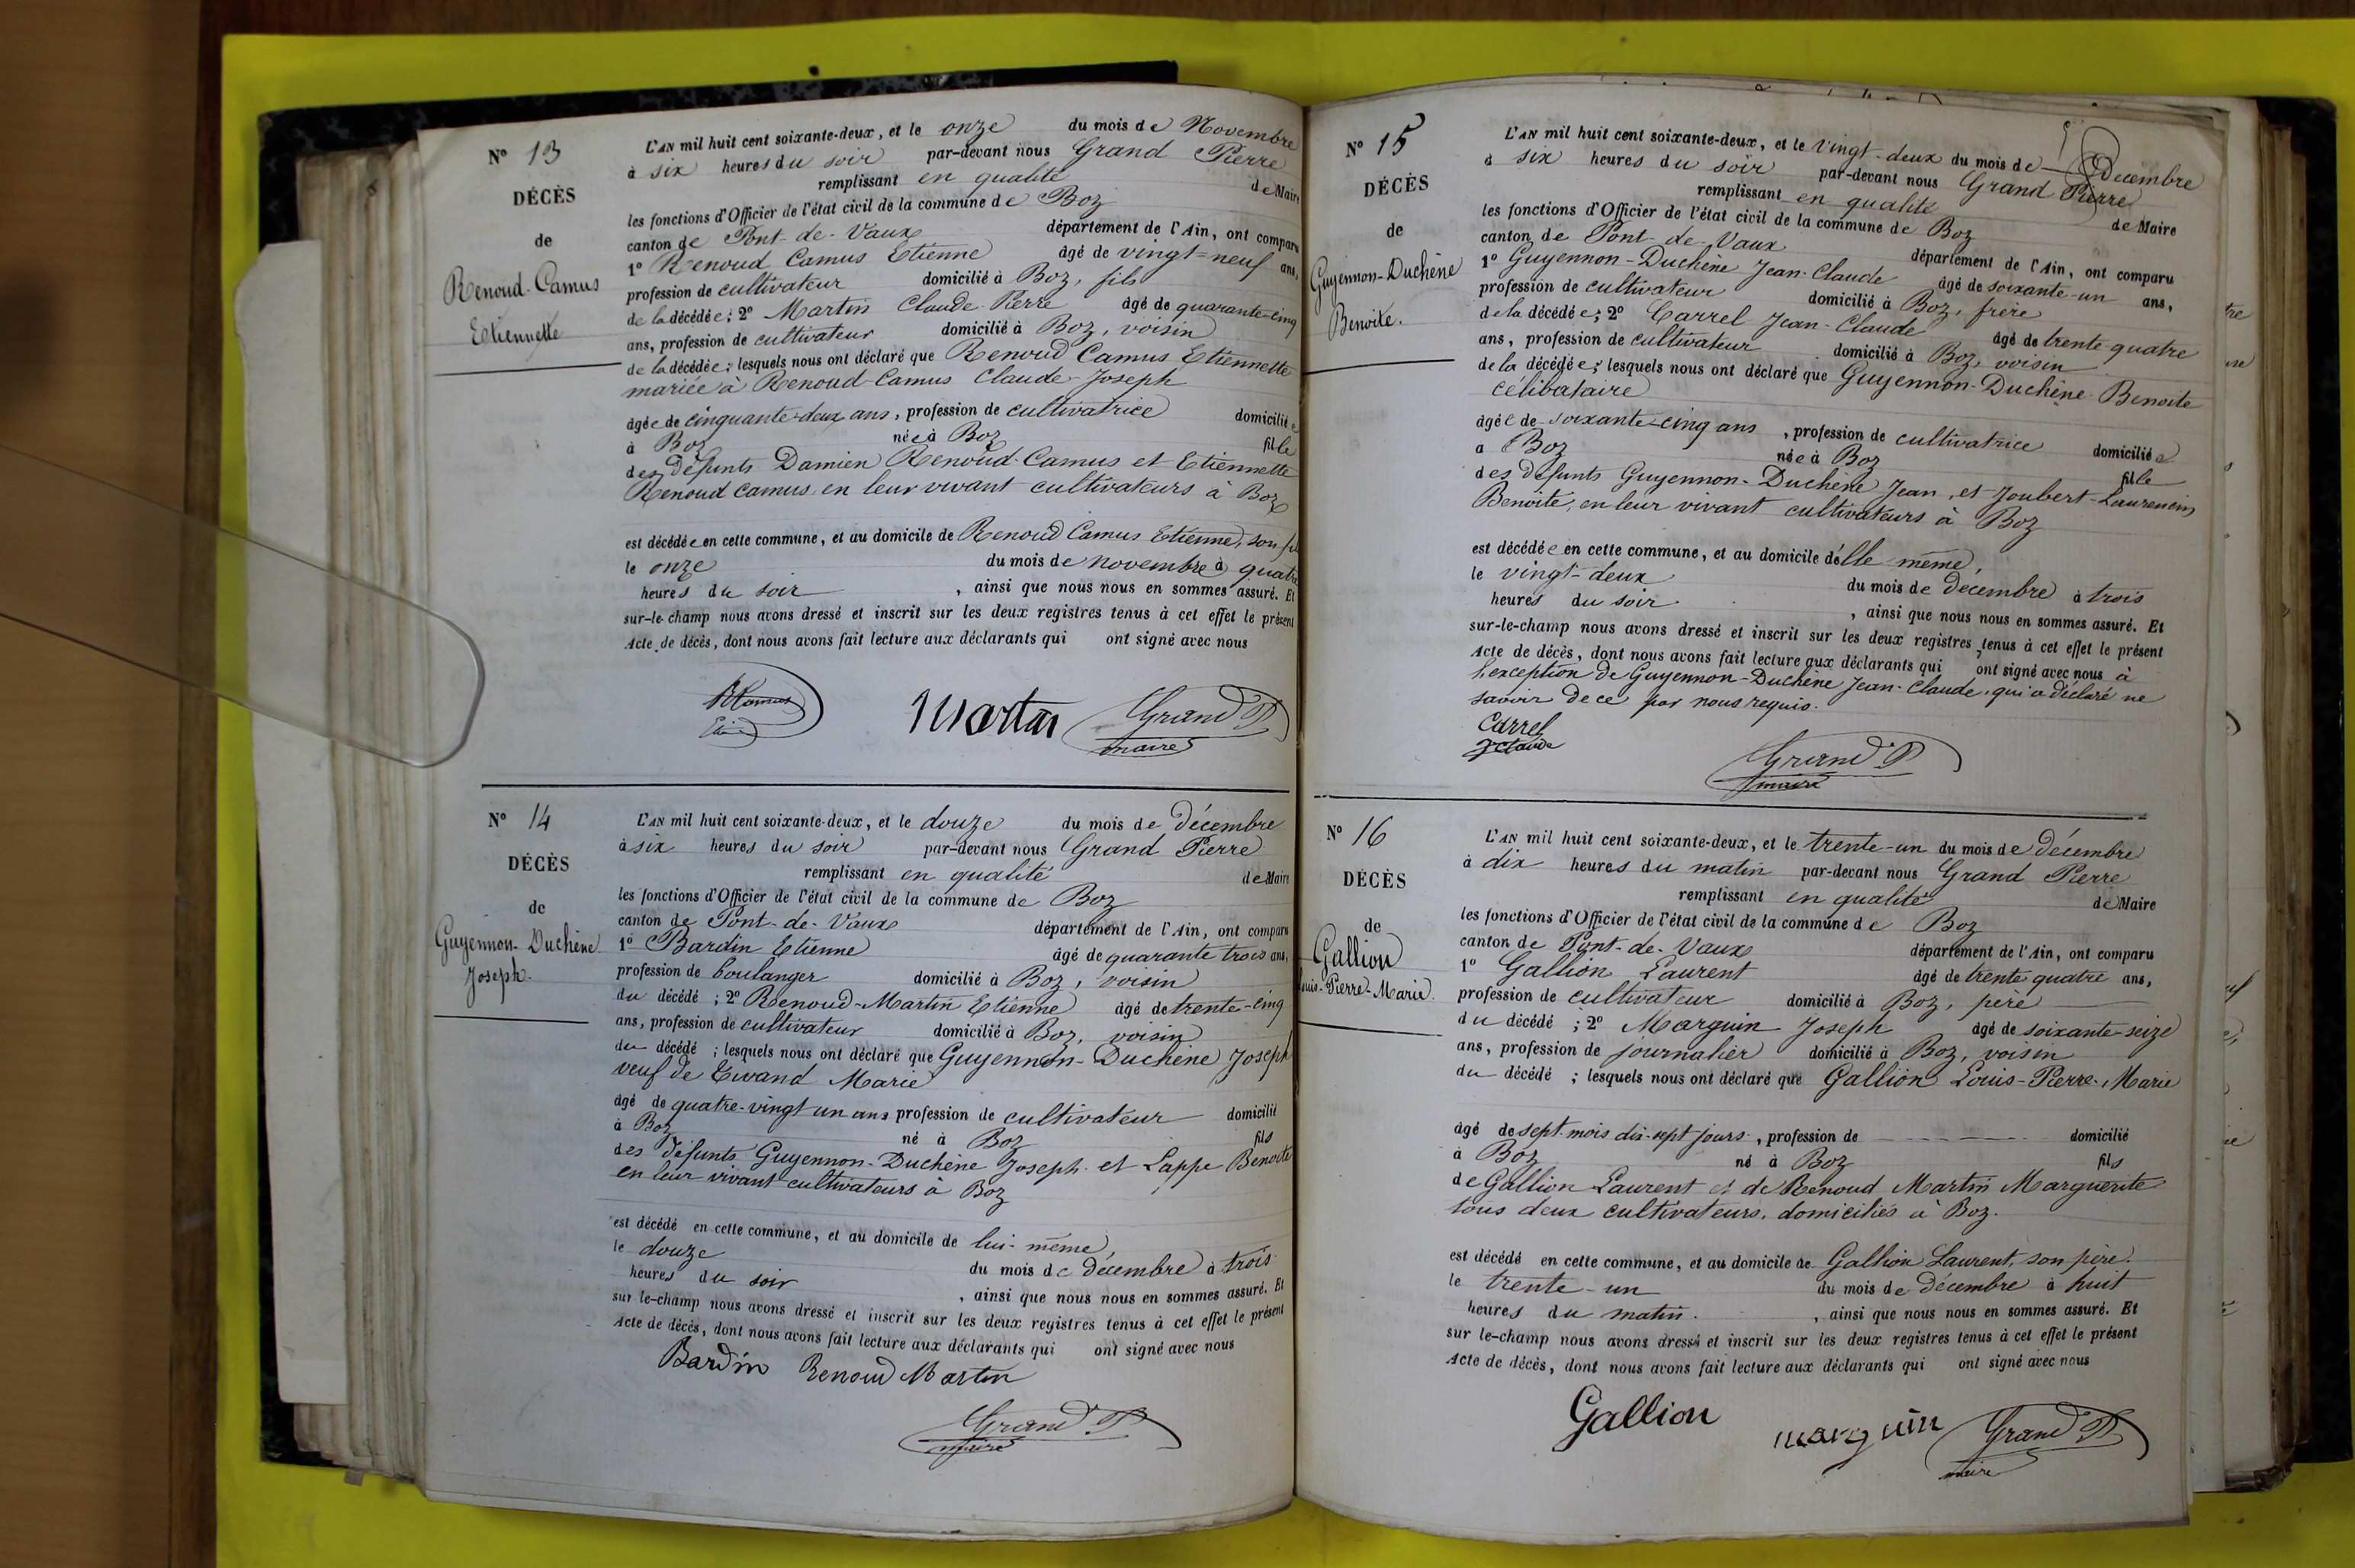 N° 13
DÉCÈS
de
Renoud-Camus
Etiennette
L'AN mil huit cent soixante-deux, et le onze du mois de Novembre
à six heures du soir par-devant nous Grand Pierre
remplissant en qualité de Maire
les fonctions d'Officier de l'état civil de la commune de Boz
canton de Pont-de-Vaux département de l'Ain, ont comparu
1° Renoud Camus Etienne âgé de vingt-neuf ans,
profession de cultivateur domicilié à Boz, fils
de la décédée; 2° Martin Claude-Pierre âgé de quarante-cinq
ans, profession de cultivateur domicilié à Boz, voisin
de la décédée; lesquels nous ont déclaré que Renoud Camus Etiennette
mariée à Renoud-Camus Claude-Joseph
âgée de cinquante-deux ans, profession de cultivatrice domiciliée
à Boz née à Boz fille
des défunts Damien Renoud-Camus et Etiennette
Renoud camus, en leur vivant cultivateurs à Boz
est décédée en cette commune, et au domicile de Renoud Camus Etienne, son fils
le onze du mois de novembre à quatre
heures du soir, ainsi que nous nous en sommes assuré. Et
sur-le-champ nous avons dressé et inscrit sur les deux registres tenus à cet effet le présent
Acte de décès, dont nous avons fait lecture aux déclarants qui ont signé avec nous
RCamus Martin Grand P
maire
N° 14
DÉCÈS
de
Guyennon-Duchêne
Joseph.
L'AN mil huit cent soixante-deux, et le douze du mois de décembre
à six heures du soir par-devant nous Grand Pierre
remplissant en qualité de Maire
les fonctions d'Officier de l'état civil de la commune de Boz
canton de Pont-de-Vaux département de l'Ain, ont comparu
1° Bardin Etienne âgé de quarante trois ans,
profession de boulanger domicilié à Boz, voisin
du décédé; 2° Renoud-Martin Etienne âgé de trente-cinq
ans, profession de cultivateur domicilié à Boz, voisin
du décédé; lesquels nous ont déclaré que Guyennon-Duchêne Joseph
veuf de Marie
âgé de quatre-vingt un ans profession de cultivateur domicilié
à Boz né à Boz fils
des défunts Guyennon-Duchêne Joseph et Lappe Benoite
en leur vivant cultivateurs à Boz
est décédé en cette commune, et au domicile de lui-même,
le douze du mois de décembre à trois
heures du soir, ainsi que nous nous en sommes assuré. Et
sur le-champ nous avons dressé et inscrit sur les deux registres tenus à cet effet le présent
Acte de décès, dont nous avons fait lecture aux déclarants qui ont signé avec nous
Bardin Renoud Martin
Grand P
maire
N° 15
DÉCÈS
de
Guyennon-Duchêne
Benoite.
L'AN mil huit cent soixante-deux, et le vingt-deux du mois de Décembre
à six heures du soir par-devant nous Grand Pierre
remplissant en qualité de Maire
les fonctions d'Officier de l'état civil de la commune de Boz
canton de Pont-de-Vaux département de l'Ain, ont comparu
1° Guyennon-Duchêne Jean-Claude âgé de soixante-un ans,
profession de cultivateur domicilié à Boz, frère
de la décédée; 2° Carrel Jean-Claude âgé de trente-quatre
ans, profession de cultivateur domicilié à Boz, voisin
de la décédée; lesquels nous ont déclaré que Guyennon-Duchêne Benoite
célibataire
âgée de soixante-cinq ans, profession de cultivatrice domiciliée
à Boz née à Boz fille
des défunts Guyennon-Duchêne Jean, et Joubert-Laurencin
Benoite, en leur vivant cultivateurs à Boz
est décédée en cette commune, et au domicile d'elle-même,
le vingt-deux du mois de décembre à trois
heures du soir, ainsi que nous nous en sommes assuré. Et
sur-le-champ nous avons dressé et inscrit sur les deux registres tenus à cet effet le présent
Acte de décès, dont nous avons fait lecture aux déclarants qui ont signé avec nous à
l'exception de Guyennon-Duchêne Jean-Claude, qui a déclaré ne
savoir de ce par nous requis.
Carrel
J Claude
Grand P
maire
N° 16
DÉCÈS
de
Gallion
Louis-Pierre-Marie.
L'AN mil huit cent soixante-deux, et le trente-un du mois de décembre
à dix heures du matin par-devant nous Grand Pierre
remplissant en qualité de Maire
les fonctions d'Officier de l'état civil de la commune de Boz
canton de Pont-de-Vaux département de l'Ain, ont comparu
1° Gallion Laurent âgé de trente quatre ans,
profession de cultivateur domicilié à Boz, père
du décédé; 2° Marguin Joseph âgé de soixante-seize
ans, profession de journalier domicilié à Boz, voisin
du décédé; lesquels nous ont déclaré que Gallion Louis-Pierre-Marie
âgé de sept mois dix-sept jours, profession de domicilié
à Boz né à Boz fils
de Gallion Laurent et de Renoud Martin Marguerite
tous deux cultivateurs, domiciliés à Boz.
est décédé en cette commune, et au domicile de Gallion Laurent, son père.
le trente-un du mois de décembre à huit
heures du matin., ainsi que nous nous en sommes assuré. Et
sur le-champ nous avons dressé et inscrit sur les deux registres tenus à cet effet le présent
Acte de décès, dont nous avons fait lecture aux déclarants qui ont signé avec nous
Gallion marguin Grand P
maire